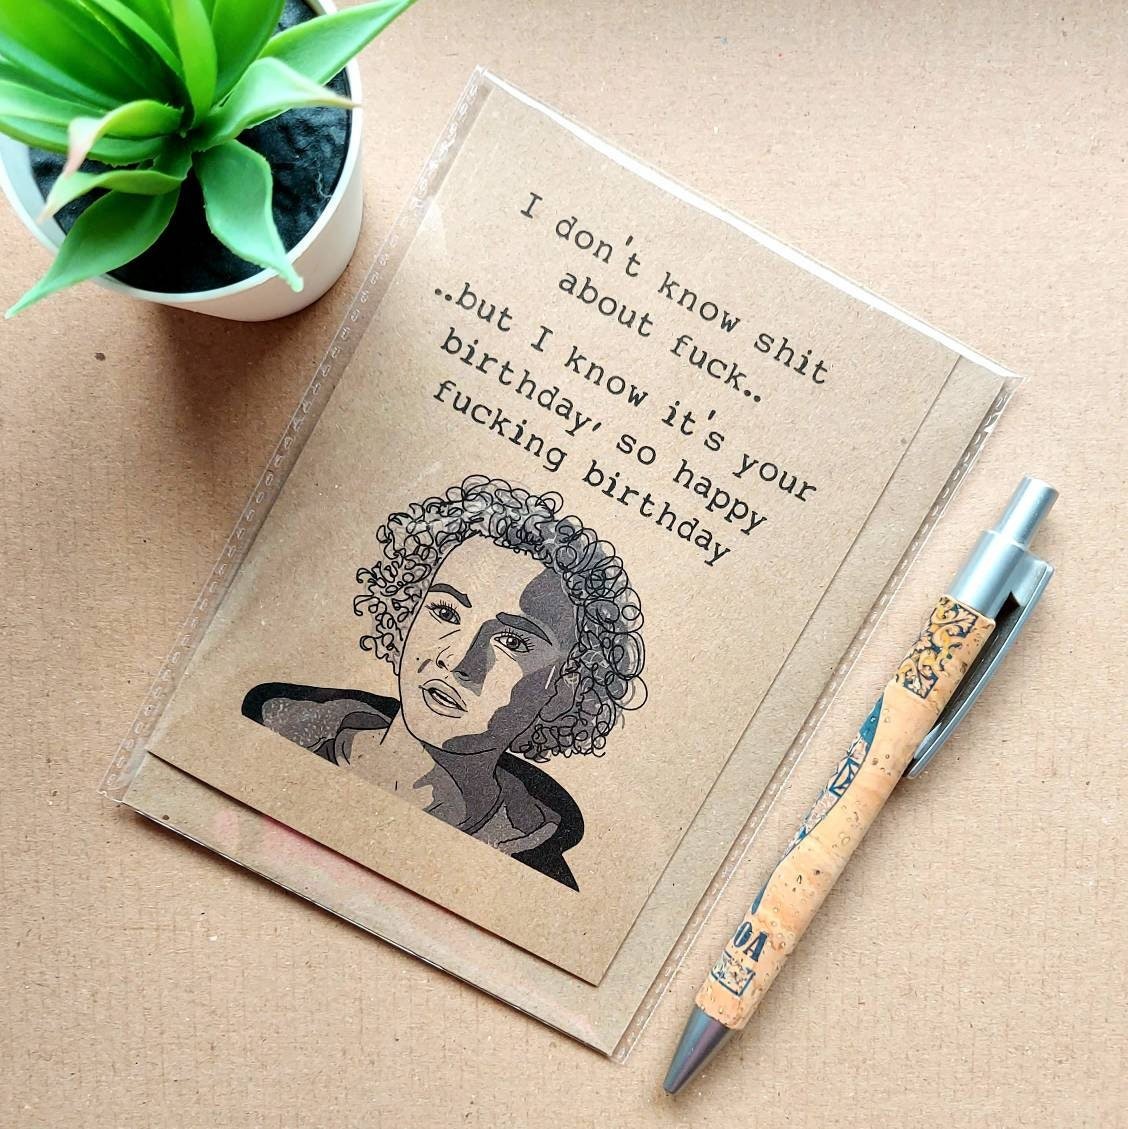 I don't know shit
about fuck..
..but I know it's your
birthday, so happy
fucking birthday
OA